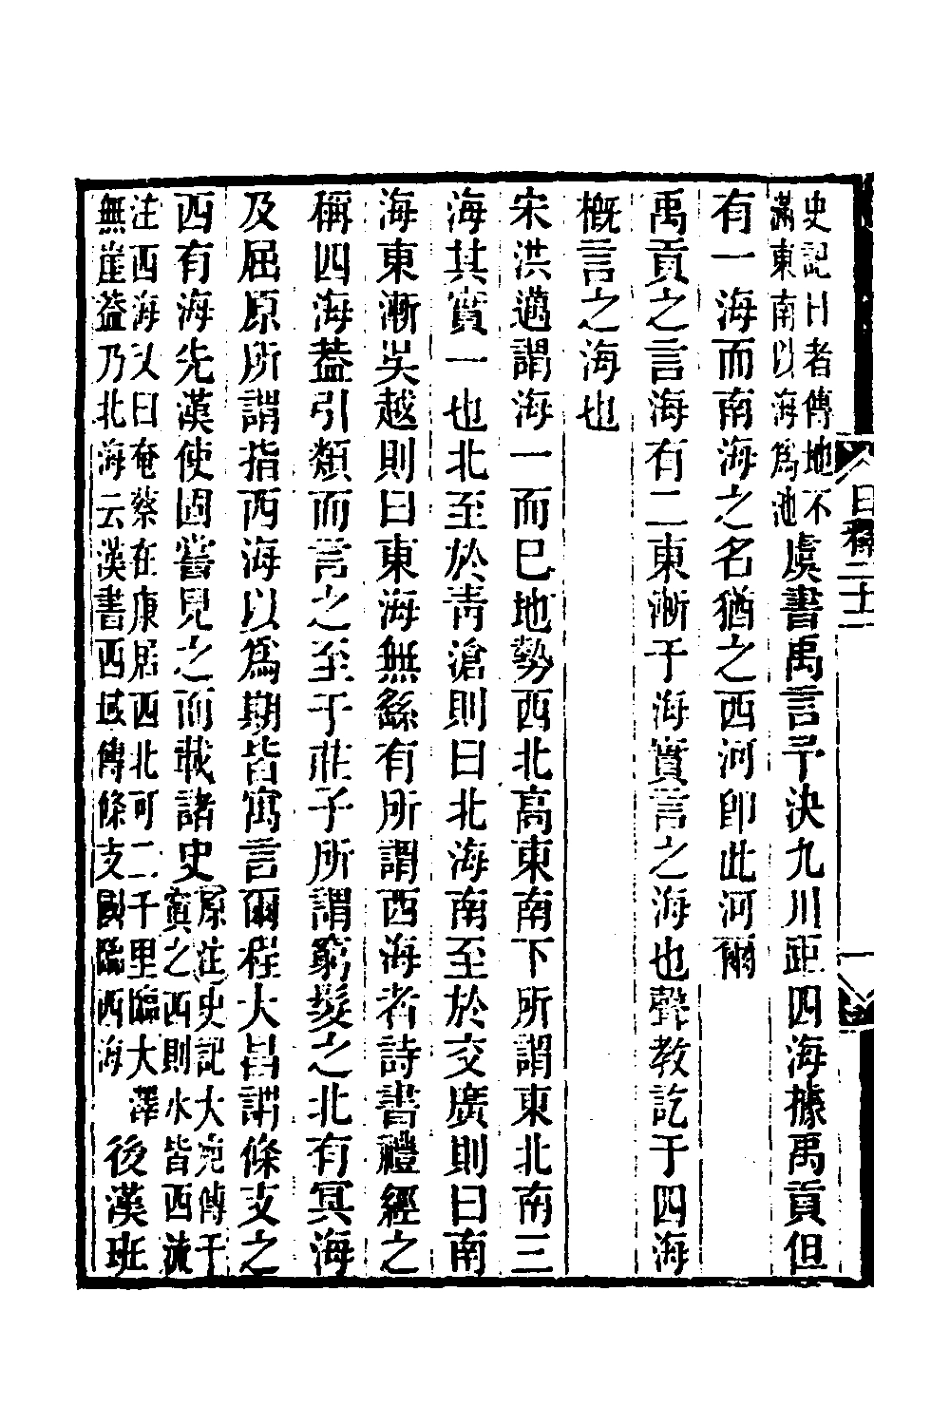 史記日者傳地不
滿東南以海為池
虞書禹言予決九川距四海據禹貢但
有一海而南海之名猶之西河卽此河爾
禹貢之言海有二東漸于海實言之海也聲教訖于四海
概言之海也
宋洪邁謂海一而巳地勢西北高東南下所謂東北南三
海其實一也北至於青滄則曰北海南至於交廣則曰南
海東漸吳越則曰東海無繇有所謂西海者詩書禮經之
稱四海葢引類而言之至于莊子所謂窮髮之北有冥海
及屈原所謂指西海以爲期皆寓言爾程大昌謂條支之
西有海先漢使固嘗見之而載諸史
原注史記大宛傳于
窴之西則水皆西流
注西海又曰奄蔡在康居西北可二千里臨大澤
無崖葢乃北海云漢書西域傳條支國臨西海
後漢班
日釋二十二
一